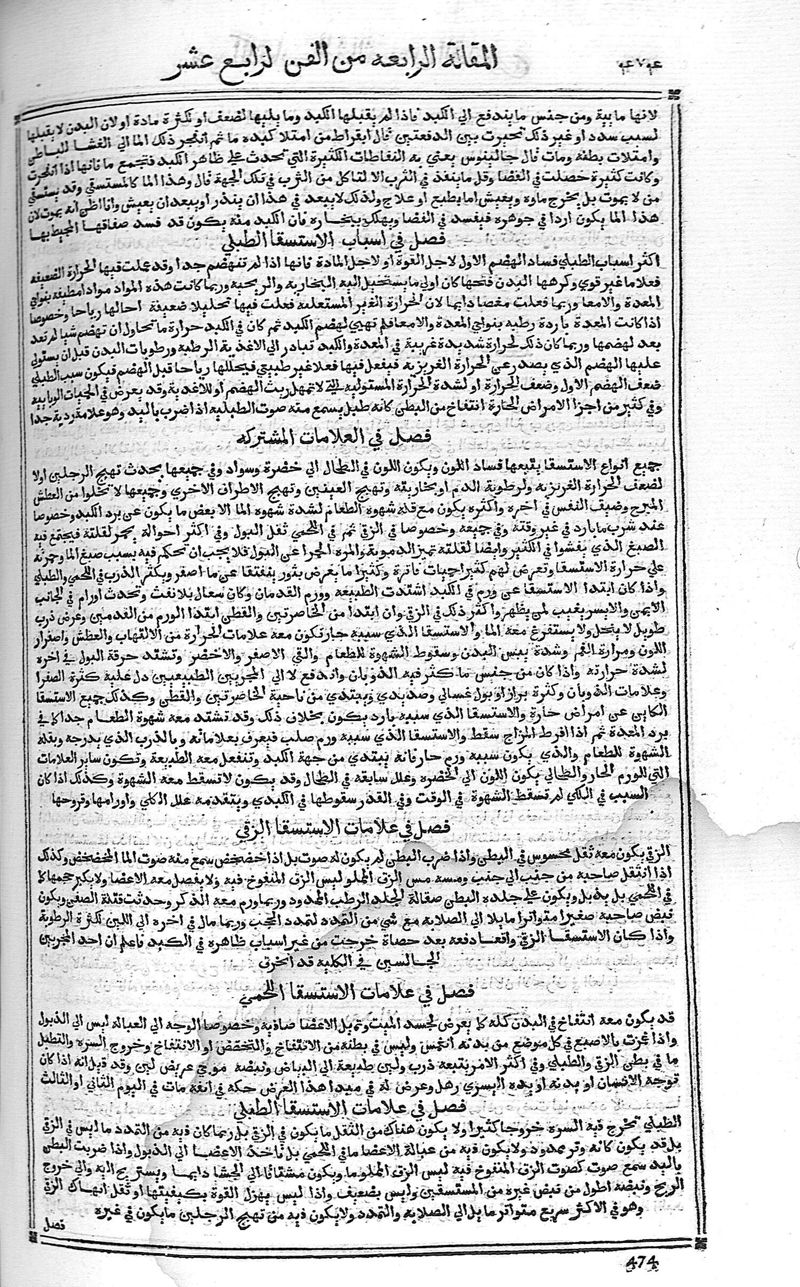 المقالة الرابعه من الفن لرابع عشر
٤٧٤
لانها مايية ومن جنس ما يندفع الي الكلية فاذا لم يقبلها الكليه وما يليها لضعف او كثرة مادة او لان البدن لا يقبلها
لسبب سدد او غير ذلك تحيرت بين الدفعتين قال ابقراط من امتلا كبده ما ثم انفجر ذلك الما الي الغشا الباطن
وامتلات بطنه ومات قال جالينوس يعني به النفاطات الكثيرة التي تحدث علي ظاهر الكبد فتجمع ما فانها اذا انفجرت
وكانت كثيرة حصلت في الفضا وقل ما ينفذ في الثرب الا لتاكل من الثرب في تلك الجهة قال وهذا الما كالمستسقي وقد يستسقي
من لا يموت بل يخرج ماوه ويعيش اما بطبع او علاج ولذلك لا يبعد في هذا ان يندر او يبعد ان يعيش وانا اظن انه يموت لان
هذا الما يكون اردا في جوهره فيفسد في الفضا ويهلك ببخاره فان الكبد منه يكون قد فسد صفاقها المحيط بها
فصل في اسباب الاستسقا الطبلي
اكثر اسباب الطبلي فساد الهضم الاول لاجل القوة او لاجل المادة فانها اذا لم تنهضم جدا وقد عملت فيها الحرارة الضعيفه
فعلا ما غير قوي وكرهها البدن فتحها كان اولي ما يستحيل اليه البخارية والريحية وربما كانت هذه المواد مواد مطيفة بنواحي
المعدة والامعا وربما فعلت مغصا دايما لان الحرارة الغير المستعلية فعلت فيها تحليلا ضعيفا احالها رياحا وخصوصا
اذا كانت المعدة باردة رطبه بنواحي المعدة والامعا فلم تهي لهضم الكبد ثم كان في الكبد حرارة ما تحاول ان تهضم شيا لم تعد
بعد لهضمها وربما كان ذلك لحرارة شديدة غريبة في المعدة والكبد تبادر الي الاغذية الرطبه ورطوبات البدن قبل ان يستولي
عليها الهضم الذي يصدر عن الحرارة الغريزيه فيفعل فيها فعلا غير طبيعي فيحللها رياحا قبل الهضم فيكون سبب الطبلي
ضعف الهضم الاول وضعف الحرارة او لشدة الحرارة المستولية التي لا تمهل ريث الهضم او للاغذية وقد يعرض في الحميات الوباييه
وفي كثير من اجزا الامراض الحارة انتفاخ من البطن كانه طبل يسمع منه صوت الطبلية اذا ضرب باليد وهو علامة ردية جدا
فصل في العلامات المشتركه
جميع انواع الاستسقا يتبعها فساد اللون ويكون اللون في الطحال الي خضرة وسواد وفي جميعها يحدث تهيج الرجلين اولا
لضعف الحرارة الغريزيه ولرطوبة الدم او بخاريته وتهيج العينين وتهيج الاطراف الاخري وجميعها لا تخلوا من العطش
المبرح وضيق النفس في اخره واكثره يكون مع قلة شهوة الطعام لشدة شهوة الما الا بعض ما يكون عن برد الكبد وخصوصا
عند شرب ما بارد في غير وقته وفي جميعه وخصوصا في الزقي ثم في اللحمي ثقل البول وفي اكثر احواله يحمر لقلته فيجتمع فيه
الصبغ الذي يفشوا في الكثير وايضا لقلته تميز الدموية والمرة الحمرا عن البول فلا يجب ان تحكم فيه بسبب صبغ الما وحمرته
علي حرارة الاستسقا وتعرض لهم كثيرا حميات فاترة وكثيرا ما يعرض بثور يتفقا عن ما اصفر ويكثر الذرب في اللحمي والطبلي
واذا كان ابتدا الاستسقا عن ورم في الكبد اشتدت الطبيعه وورم القدمان وكان سعال بلا نفث وتحدث اورام في الجانب
الايمن والايسر يغيب ثم يظهر واكثر ذلك في الزقي وان ابتدا من الخاصرتين والقطن ابتدا الورم من القدمين وعرض ذرب
طويل لا ينحل ولا يستفرغ معه الما والاستسقا الذي سببه حار تكون معه علامات الحرارة من الالتهاب والعطش واصفرار
اللون ومرارة الفم وشدة يبس البدن وسقوط الشهوة للطعام والقي الاصفر والاخضر وتشتد حرقة البول في اخره
لشدة حرارته واذا كان من جنس ما كثر فيه الذوبان واندفع لا الي المجريين الطبيعيين دل علية كثرة الصفرا
وعلامات الذوبان وكثرة براز او بول غسالي وصديدي ويبتدي من ناحية الخاصرتين والقطن وكذلك جميع الاستسقا
الكاين عن امراض حارة والاستسقا الذي سببه بارد يكون بخلاف ذلك وقد تشتد معه شهوة الطعام جدا كما في
برد المعدة ثم اذا افرط المزاج سقط والاستسقا الذي سببه ورم صلب فيعرف بعلاماته وبالذرب الذي يدرجه وبقلة
الشهوة للطعام والذي يكون سببه ورم حار فانه يبتدي من جهة الكبد وتنفعل معه الطبيعة وتكون ساير العلامات
التي للورم الحار والطحالي يكون اللون الي الخضره وعلل سابقه في الطحال وقد يكون لا تسقط معه الشهوة وكذلك اذا كان
السبب في الكلي لم تسقط الشهوة في الوقت وفي القدر سقوطها في الكبدي ويتقدمه علل الكلي واورامها وقروحها
فصل في علامات الاستسقا الزقي
الزقي يكون معه ثقل محسوس في البطن واذا ضرب البطن لم يكون له صوت بل اذا خضخض سمع منه صوت الما المخضخض وكذلك
اذا انتقل صاحبه من جنب الي جنب ومسه مس الزق المملو ليس الزق المنفوخ فيه ولا يفصل معه الاعضا ولا يكبر حجمها كما
في اللحمي بل يذبل ويكون علي جلده البطن صقالة الجلد الرطب الممدود وربما ورم معه الذكر وحدثت قتلة الصفن ويكون
نبض صاحبه صغيرا متواترا مايلا الي الصلابه مع شي من التمدد لتمدد الحجب وربما مال في اخره الي اللين لكثرة الرطوبة
واذا كان الاستسقا الزقي واقعا دفعه بعد حصاة خرجت من غير اسباب ظاهره في الكبد فاعلم ان احد المجريين
الجالبين في الكلية قد انخرق
فصل في علامات الاستسقا اللحمي
قد يكون معه انتفاخ في البدن كله كما يعرض لجسد الميت وتميل الاعضا صافيه وخصوصا الوجه الي العباله ليس الي الذبول
واذا غمزت بالاصبع في كل موضع من بدنه انغمس وليس في بطنه من الانتفاخ والتخضخض او الانتفاخ وخروج السره والتطبل
ما في بطن الزقي والطبلي وفي اكثر الامر يتبعه ذرب ولين طبيعة الي البياض ونبضه موجي عريض لين وقد قيل انه اذا كان
بوجه الانسان او بدنه او يده اليسري رهل وعرض له في مبدا هذا العرض حكة في انفه مات في اليوم الثاني او الثالث
فصل في علامات الاستسقا الطبلي
الطبلي تخرج فيه السره خروجا كثيرا ولا يكون هناك من الثقل ما يكون في الزقي بل ربما كان فيه من التمدد ما ليس في الزقي
بل قد يكون كانه وتر ممدود ولا يكون فيه من عبالة الاعضا ما في اللحمي بل تاخذ الاعضا الي الذبول واذا ضربت البطن
باليد سمع صوت كصوت الزق المنفوخ فيه ليس الزق المملو ما ويكون مشتاقا الي الجشا دايما ويستريح اليه والي خروج
الريح ونبضه اطول من نبض غيره من المستسقين وليس بضعيف واذا ليس يهزل القوة بكيفيتها او ثقل انهاك الزقي
وهو في الاكثر سريع متواتر مايل الي الصلابه والتمدد ولا يكون فيه من تهيج الرجلين ما يكون في غيره
فصل
474